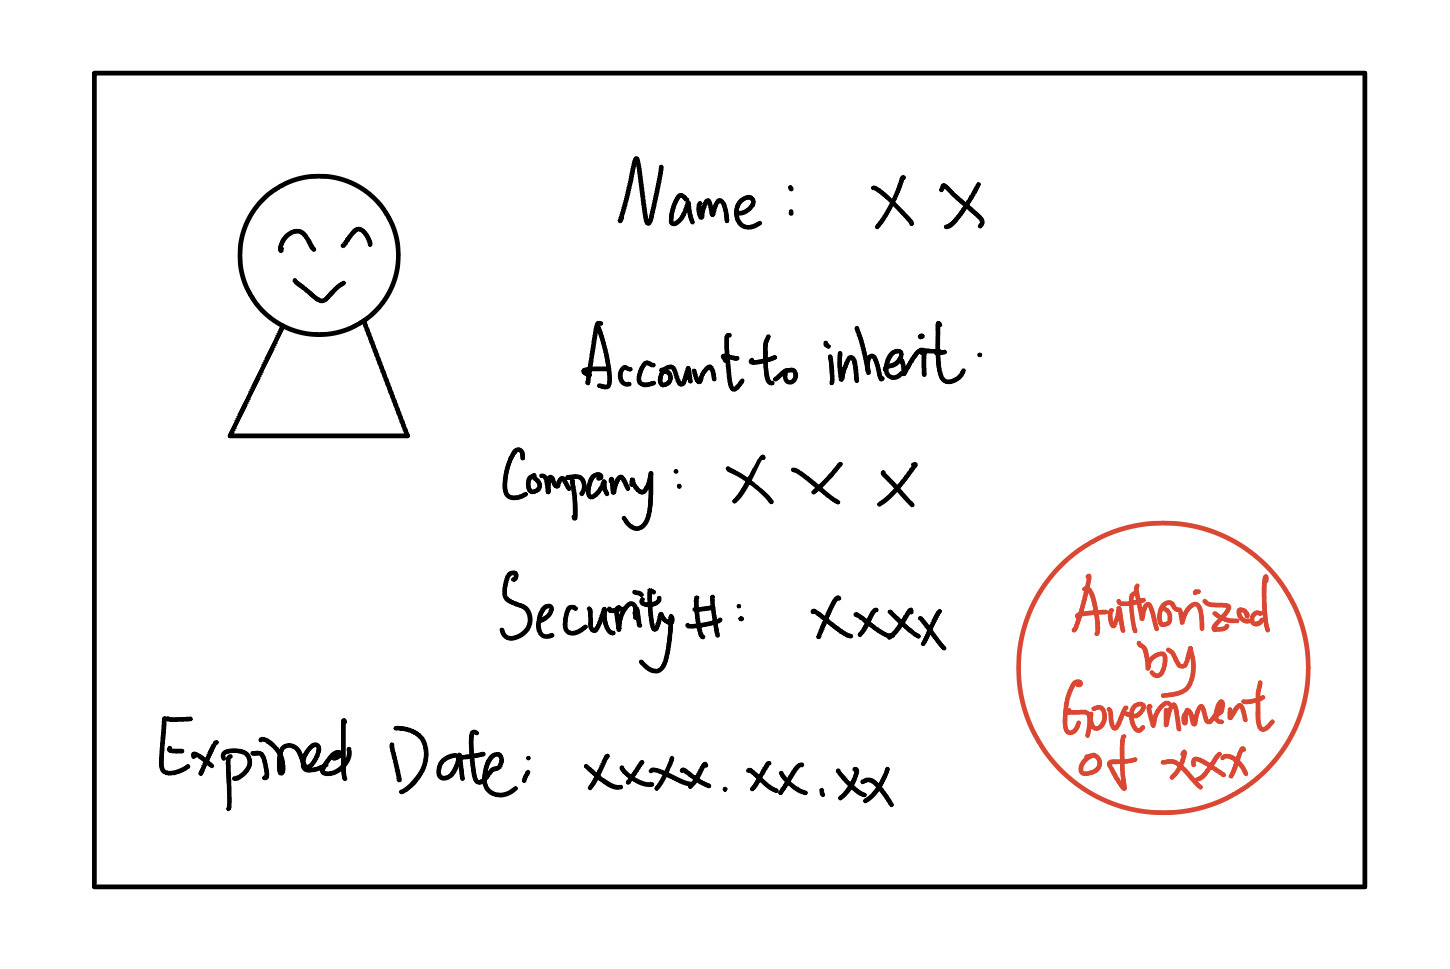 Name: XX
Account to inherit.
Company: XXX
Security#: XXXX
Expired Date: XXXX.XX.XX
Authorized
by
Government
of XXX